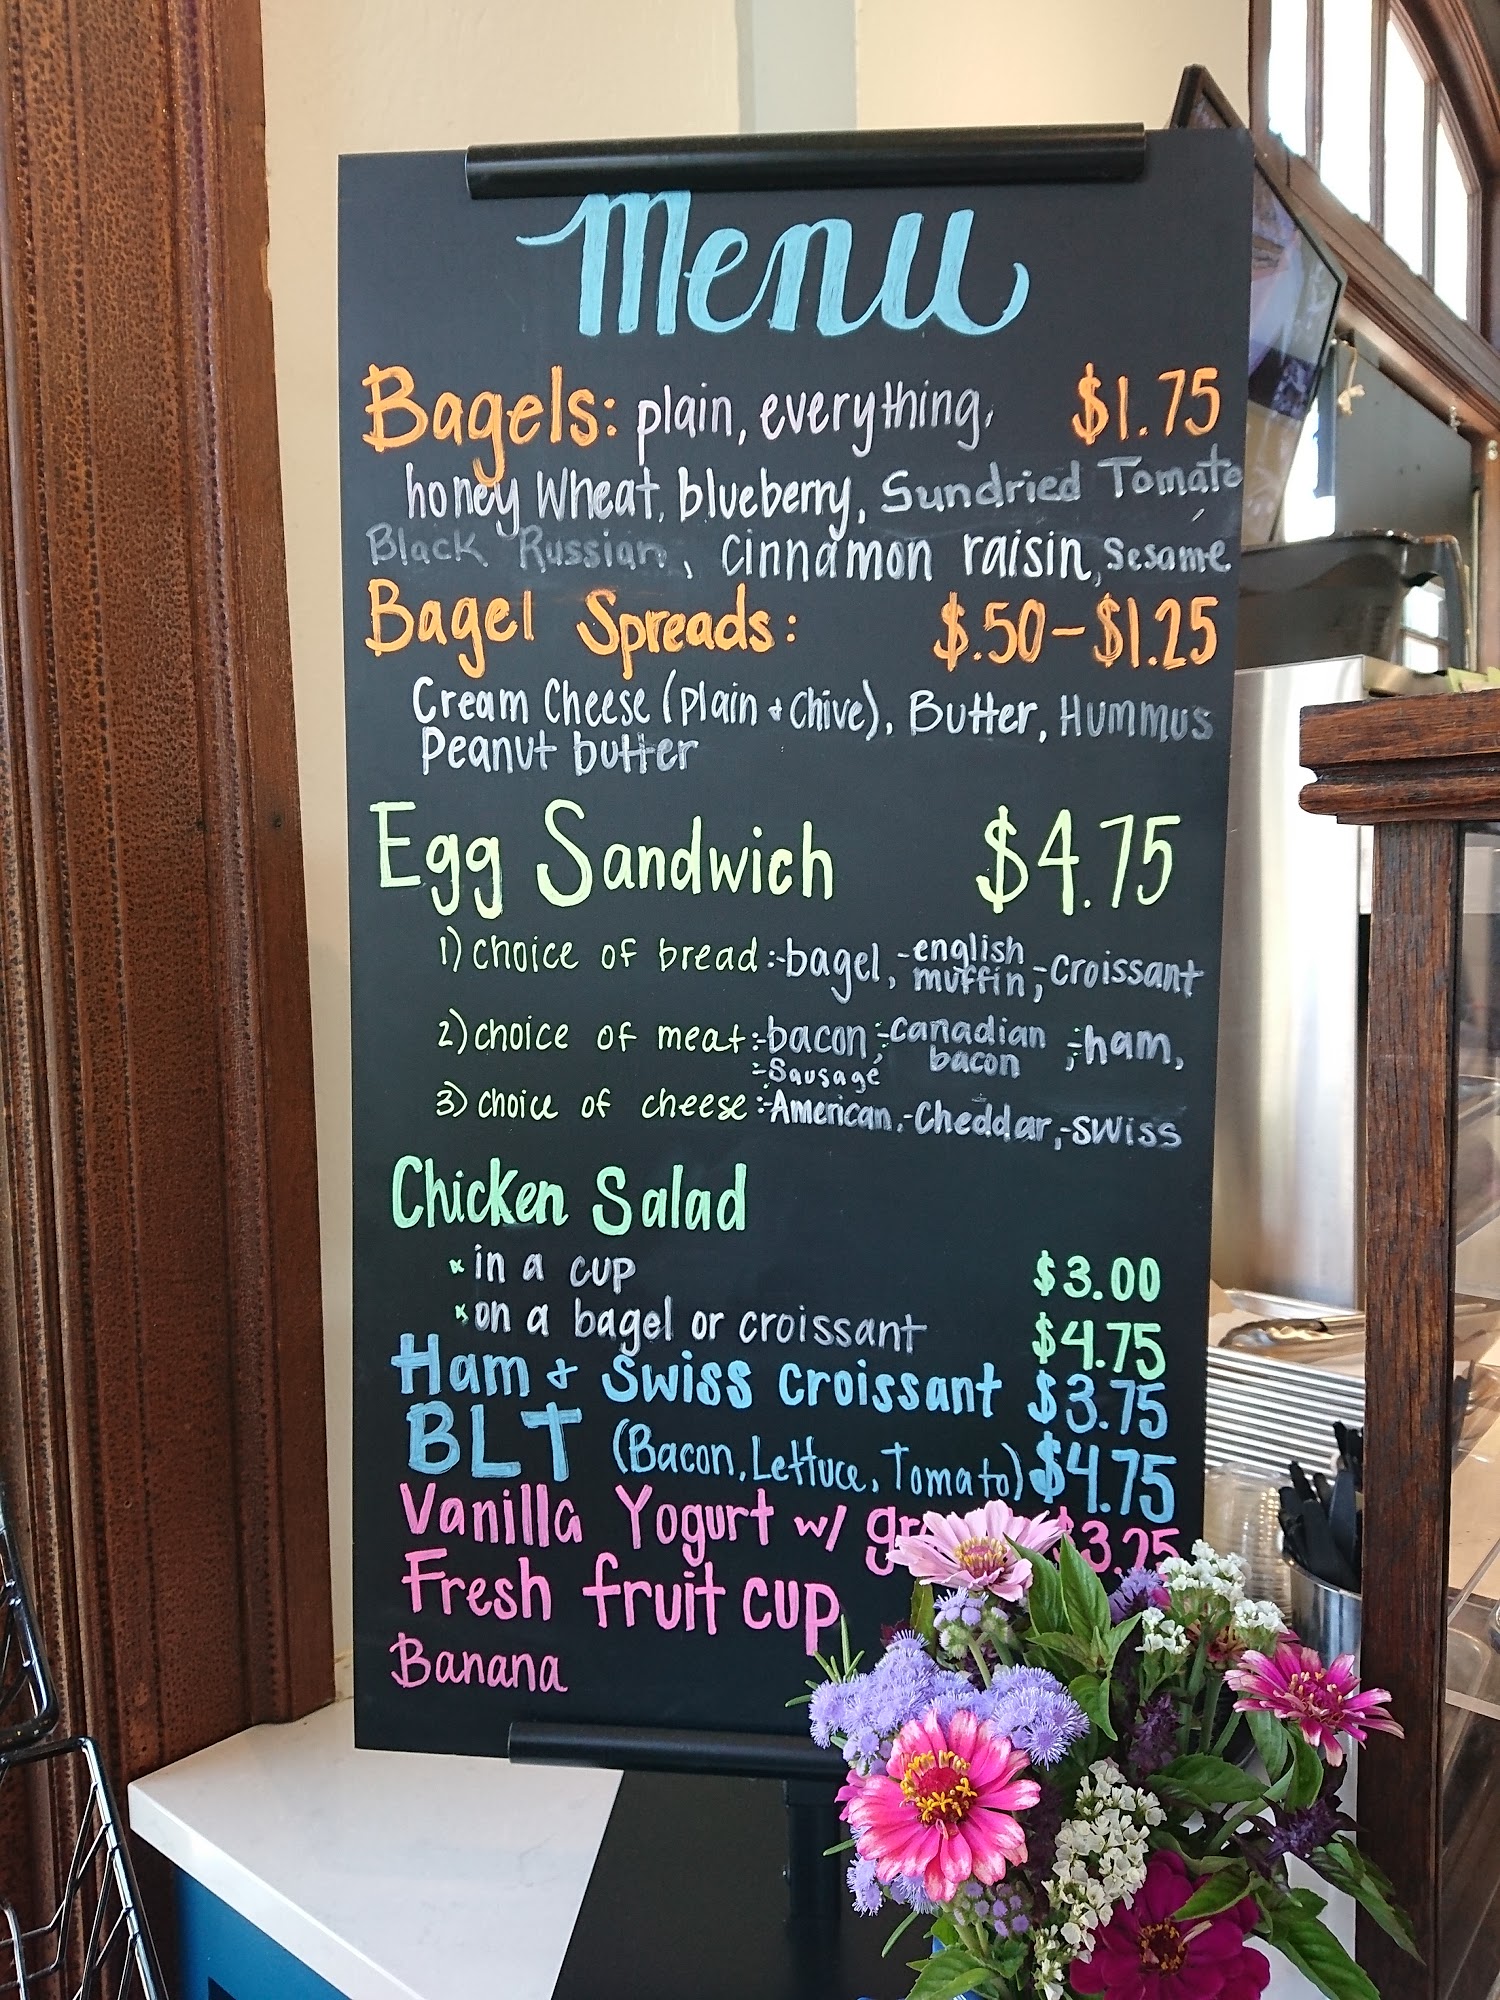 Menu
Bagels: plain, everything, $1.75
honey wheat, blueberry, Sundried Tomato
Black Russian, cinnamon raisin, Sesame
Bagel Spreads: $.50-$1.25
Cream Cheese (plain + chive), Butter, Hummus
Peanut butter
Egg Sandwich $4.75
1) choice of bread: -bagel, -english muffin, -croissant
2) choice of meat: -bacon, -canadian bacon, -ham,
-Sausage
3) choice of cheese: -American, -Cheddar, -swiss
Chicken Salad
* in a cup $3.00
* on a bagel or croissant $4.75
Ham + Swiss croissant $3.75
BLT (Bacon, Lettuce, Tomato) $4.75
Vanilla Yogurt w/ $3.25
Fresh fruit cup
Banana